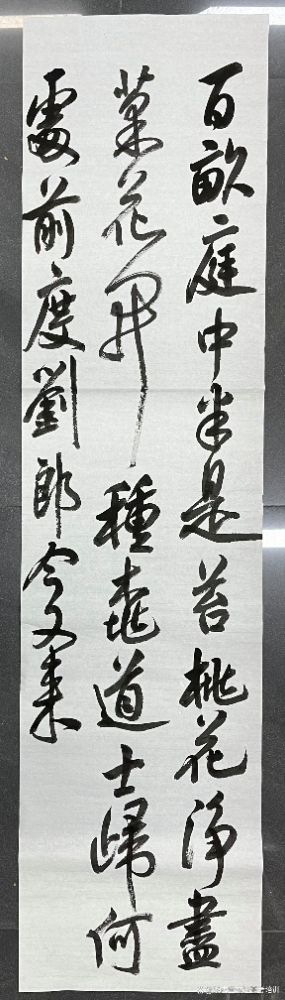 百畝庭中半是苔桃花淨盡
菜花開種桃道士歸何
處前度劉郎今又來